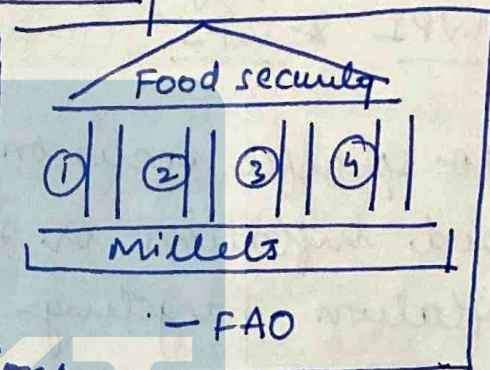 Food security
① ② ③ ④
Millets
- FAO